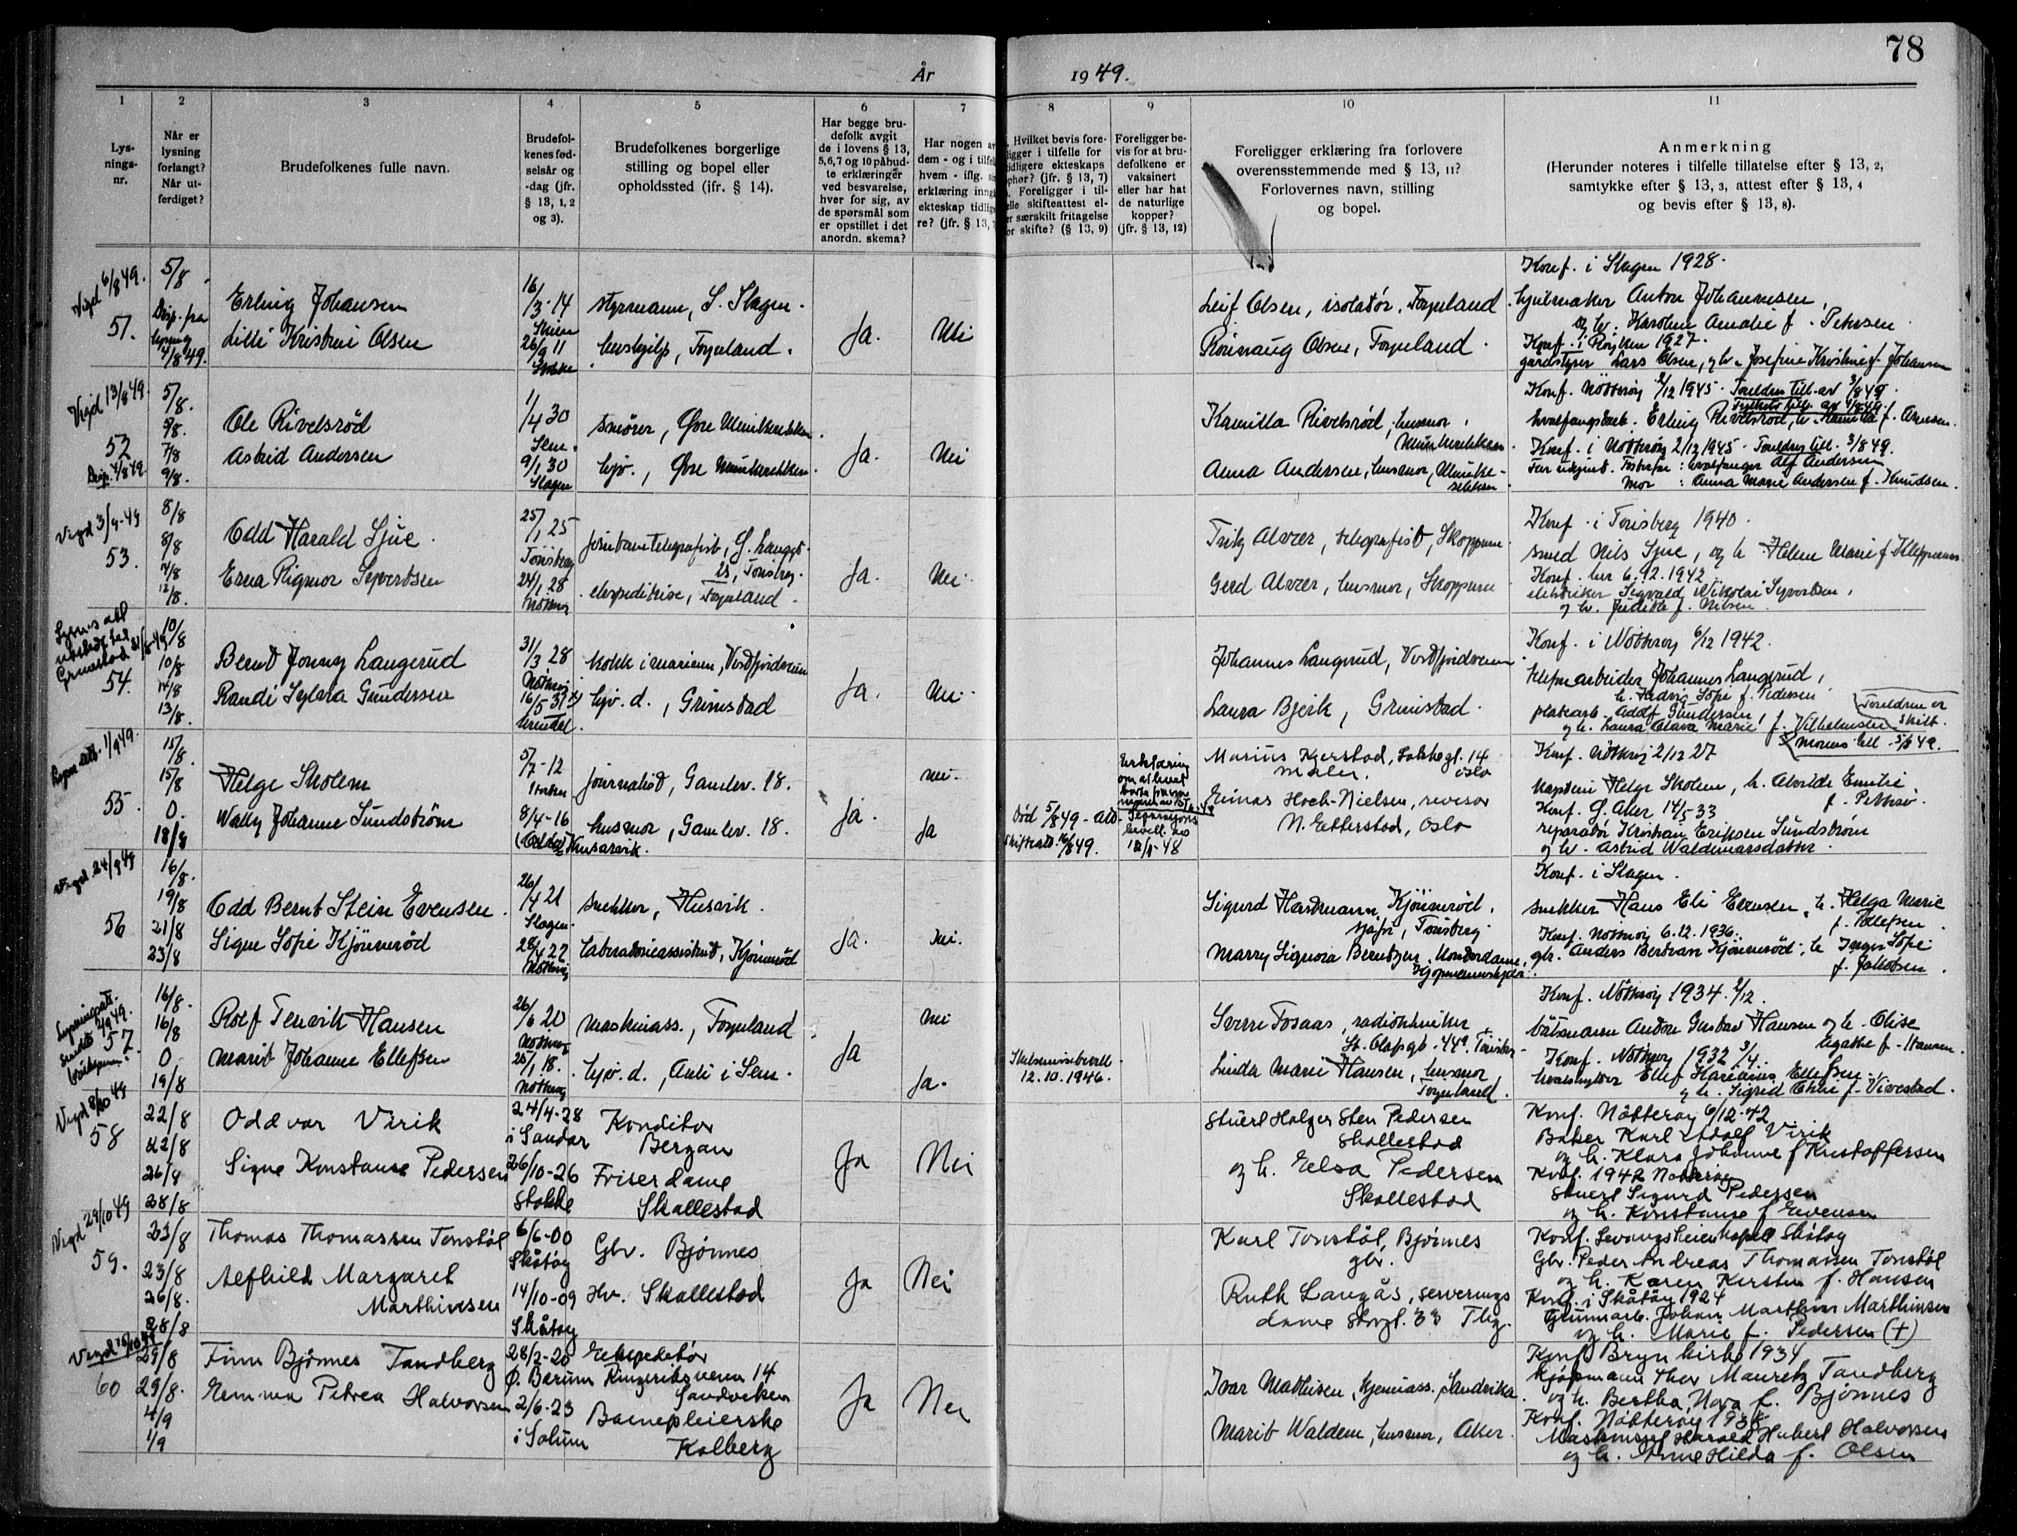 78
År 1949.
1
2
3
4
5
6
7
8
9
10
11
Lys-
nings-
nr.
Når er
lysning
forlangt?
Når ut-
ferdiget?
Brudefolkenes fulle navn.
Brudefol-
kenes fød-
selsår og
-dag (jfr.
§ 13, 1, 2
og 3).
Brudefolkenes borgerlige
stilling og bopel eller
opholdssted (jfr. § 14).
Har begge bru-
defolk avgit
de i lovens § 13,
5,6,7 og 10 påbud-
te erklæringer
ved besvarelse,
hver for sig, av
de spørsmål som
er opstillet i det
anordn. skema?
Har nogen av
dem - og i tilfel
hvem - iflg. si
erklæring inng
ekteskap tidlig
re? (jfr. § 13, 7
Hvilket bevis fore-
ligger i tilfelle for
tidligere ekteskaps
ophør? (jfr. § 13, 7)
Foreligger i til-
elle skifteattest el-
er særskilt fritagelse
or skifte? (§ 13, 9)
Foreligger be-
vis for at bru-
defolkene er
vaksinert
eller har hat
de naturlige
kopper?
(jfr. § 13, 12)
Foreligger erklæring fra forlovere
overensstemmende med § 13, 11?
Forlovernes navn, stilling
og bopel.
Anmerkning
(Herunder noteres i tilfelle tillatelse efter § 13, 2,
samtykke efter § 13, 3, attest efter § 13, 4
og bevis efter § 13, 8).
Vigd 6/8 49.
51.
5/8
Disp. fra
lysning
4/8 49.
Erling Johansen
Lilli Kristine Olsen
16/3-14
Skien
26/9 11
Stokke
styrmann, S. Slagen.
hushjelp, Føynland.
Ja.
Nei
Leif Olsen, isolatør, Føynland
Rønnaug Olsen, Føynland.
Konf. i Slagen 1928.
hjulmaker Anton Johannesen,
og h. Karoline Amalie f. Petersen
Konf. i Røyken 1927.
Lars Olsen, og h. Josefine Kristine f. Johansen
Vigd 13/8 49.
52
Disp. 4/8 49.
5/8.
5/8.
7/8
9/8.
Ole Rivelsrød
Astrid Andersen
1/4 30
Sem.
9/1 30
Slagen
smører, Øvre Munkerekken.
hjv., Øvre Munkerekken.
Ja.
Nei
Kamilla Rivelsrød, husmor,
Munkerekken.
Anna Andersen, husmor, Munke-
rekken.
Konf. Nøtterøy 2/12 1945. Foreldres till. av 3/8 49
Fylkets till. av 4/8 49.
hvalfangstarb. Erling Rivelsrød, h. Kamilla f. Arnesen.
Konf. i Nøtterøy 2/12 1945. Foreldres till. 3/8 49.
Far ubekjent. Fosterfar: hvalfanger Alf Andersen
Mor: Anna Marie Andersen f. Knudsen.
Vigd 3/9-49
53.
8/8
8/8
14/8
12/8.
Odd Harald Sjue.
Erna Rigmor Syvertsen
25/1 25
Tønsberg
24/1 28
Nøtterøy
jernbanetelegrafist, G. Langgt.
25, Tønsberg.
ekspeditrise, Føynland.
Ja.
Nei.
Fritz Alvær, telegrafist, Skoppum
Gerd Alvær, husmor, Skoppum
Konf. i Tønsberg 1940.
smed Nils Sjue, og h. Helene Marie f.
Konf. her 6.12.1942
elektriker Sigvald Nikolai Syvertsen,
og h. Judithe f. Nilsen.
54.
10/8
10/8
14/8
13/8.
Bernt Jonny Langerud
Randi Sylvia Gundersen
31/3 28
Nøtterøy
16/5 31
Arendal
kokk i marinen, Vestfjordveien
hjv. d., Grimstad
Ja.
Nei.
Johannes Langerud, Vestfjordveien
Laura Bjerk, Grimstad.
Konf. i Nøtterøy 6/12 1942.
Johannes Langerud,
h. Hedvig Sofie f. Pedersen
platearb. Adolf Gundersen,
og h. Laura Olava Marie f. Vilhelmsen
Foreldrene er
skilt.
Morens till. 5/8 49.
Lysn. att. 1/9 49.
55.
15/8.
15/8
0.
18/8
Helge Skolem
Wally Johanne Sundstrøm
5/7-12
8/4-16
journalist, Gamlev. 18.
husmor, Gamlev. 18.
Ja.
Nei.
Ja
Død 5/8 49
Skifteatt. 49.
Erklæring
om at
Marius Kjerstad, Sakkegt. 14
maler. Oslo
Einar Hoch-Nielsen, revisor
N. Etterstad, Oslo
Konf. Nøtterøy 2/12 27
kaptein Helge Skolem, h. Alvilde Emilie
Konf. G. Aker 14/5 33
reparatør Kristian Eriksen Sundstrøm
og h. Astrid Waldemarsdatter.
Vigd 24/9 49
56
16/8.
19/8
21/8
23/8
Odd Bernt Stein Evensen.
Signe Sofie Kjønnerød
26/4 21
Slagen.
28/4 22
Nøtterøy
snekker, Husvik.
Laboratorieassistent, Kjønnerød
Ja.
Nei.
Sigurd Hartmann Kjønnerød,
sjåfør, Tønsberg.
Marry Signora Berntzen, Kontordame,
Konf. i Slagen.
snekker Hans Eli Evensen, h. Helga Marie
f. Tollefsen
Konf. Nøtterøy 6.12.1936.
gbr. Anders Bertran Kjønnerød, h. Inger Sofie
f. Jakobsen.
57
16/8.
16/8
0
19/8
Rolf Tenvik Hansen
Marit Johanne Ellefsen
26/6 20
Nøtterøy
25/1 18.
Nøtterøy
maskinass., Føynland
hjv. d., Auli i Sem.
Ja
Nei
Ja.
Skilsmissebevill.
12.10.1946.
Sverre Fosaas, radiotekniker
St. Olafsgt. 44a Tønsberg.
Linda Marie Hansen, husmor
Føynland.
Konf. Nøtterøy 1934. 2/12.
båtsmann Anton Gustav Hansen og h. Olise
Agathe f. Hansen.
Konf. Nøtterøy 1932 3/4.
hvalskytter Ellef Karelius Ellefsen
og h. Sigrid Othlie f. Vivestad.
Vigd 8/10 49
58
22/8
22/8
26/8
28/8
Oddvar Virik
Signe Konstanse Pedersen
24/4-28
i Sandar
26/10-26
Stokke
Konditor
Bergan
Friserdame
Skallestad
Ja
Nei
Stuert Holger Sten Pedersen
Skallestad
og h. Elsa Pedersen
Skallestad
Konf. Nøtterøy 6/12-42
Baker Karl Adolf Virik
og h. Klara Johanne f Kristoffersen
Konf. 1942 Nøtterøy
Stuert Sigurd Pedersen
og h. Konstanse f Evensen
Vigd 29/10 49
59.
23/8
23/8
26/8.
28/8
Thomas Thomassen Tonstøl
Aefhild Margaret
Marthinsen
6/6-00
Skåtøy
14/10-09
Skåtøy
Gbr. Bjønnes
Hv. Skallestad
Ja
Nei
Karl Tonstøl, Bjønnes
gbr.
Ruth Langås, serverings
dame Storgt. 33 Tbg.
Konf. Levangsheien kapell Skåtøy
Gbr. Peder Andreas Thomassen Tonstøl
og h. Karen Kirsten f. Hansen
Konf. i Skåtøy 1924
Grunnarb. Johan Marthin Marthinsen
og h. Marie f. Pedersen (+)
Vigd 15/10 49
60
29/8
29/8.
4/9
1/9
Finn Bjønnes Tandberg
Gemma Petrea Halvorsen
28/2-20
Ø. Bærum
2/6-23
i Solum
Ekspeditør
Ringeriksveien 14
Sandviken
Barnepleierske
Kolberg
Ja
Nei
Ivar Mathisen, kjemiass., Sandvika
Marit Waldem, husmor, Aker.
Konf. Bryn kirke 1934
Kjøpmann Thor Mauritz Tandberg
og h. Bertha Nora f. Bjønnes
Konf. Nøtterøy 1938
Maskinsjef Harald Hubert Halvorsen
og h. Anne Hilda f. Olsen